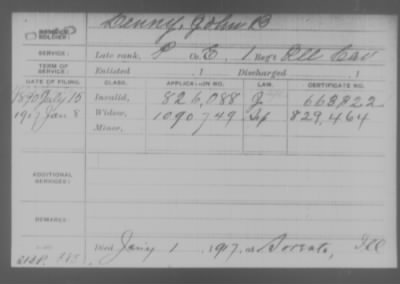 Denny, John B
SOLDIER:
SERVICE: Late rank, P Co. E, 1 Reg't Ill Cav
TERM OF SERVICE: Enlisted , 1 Discharged , 1
DATE OF FILING. CLASS. APPLICATION NO. LAW. CERTIFICATE NO.
1890 July 15 Invalid, 826,088 J 663822
1917 Jan 8 Widow, 1090,749 829,464
Minor,
ADDITIONAL SERVICES:
REMARKS:
Died Jany 1, 1917, at Sorento, Ill